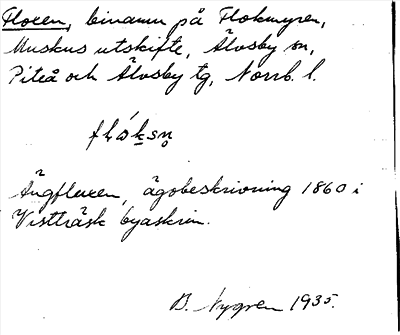 Floxen, binamn på Flokmyren,
Muskus utskifte, Älvsby sn,
Piteå och Älvsby tg, Norrb. l.
flóksn̥
Ängfluxen, ägobeskrivning 1860 i
Vistträsk byaskrin.
B. Nygren 1935.